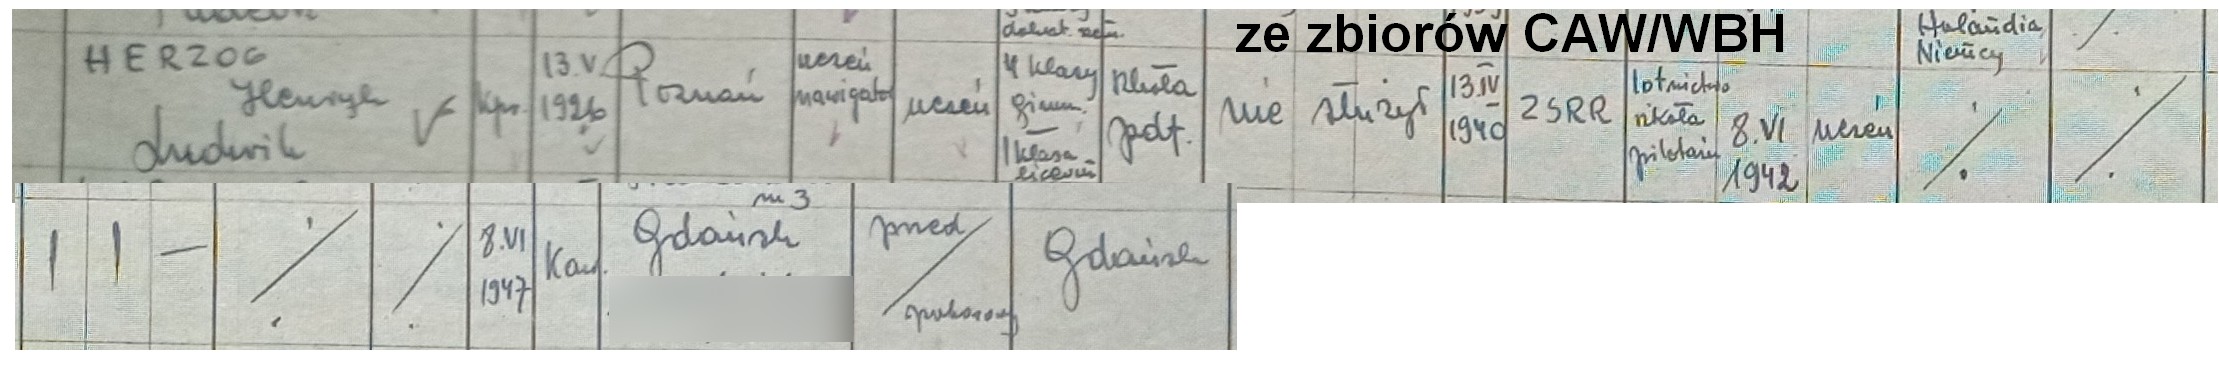 dokszt. zaw.
ze zbiorów CAW/WBH
Holandia
Niemcy
HERZOG
Henryk
Ludwik
kpr.
13.V
1926
Poznań
uczeń
nawigator
uczeń
4 klasy
gimn.
1 klasa
liceum
szkoła
podt.
nie służył
13.IV
1940
ZSRR
lotnictwo
szkoła
pilotażu
8.VI
1942
uczeń
nr 3
8.VI
1947
Kaw.
Gdańsk
przed
poborowy
Gdańsk